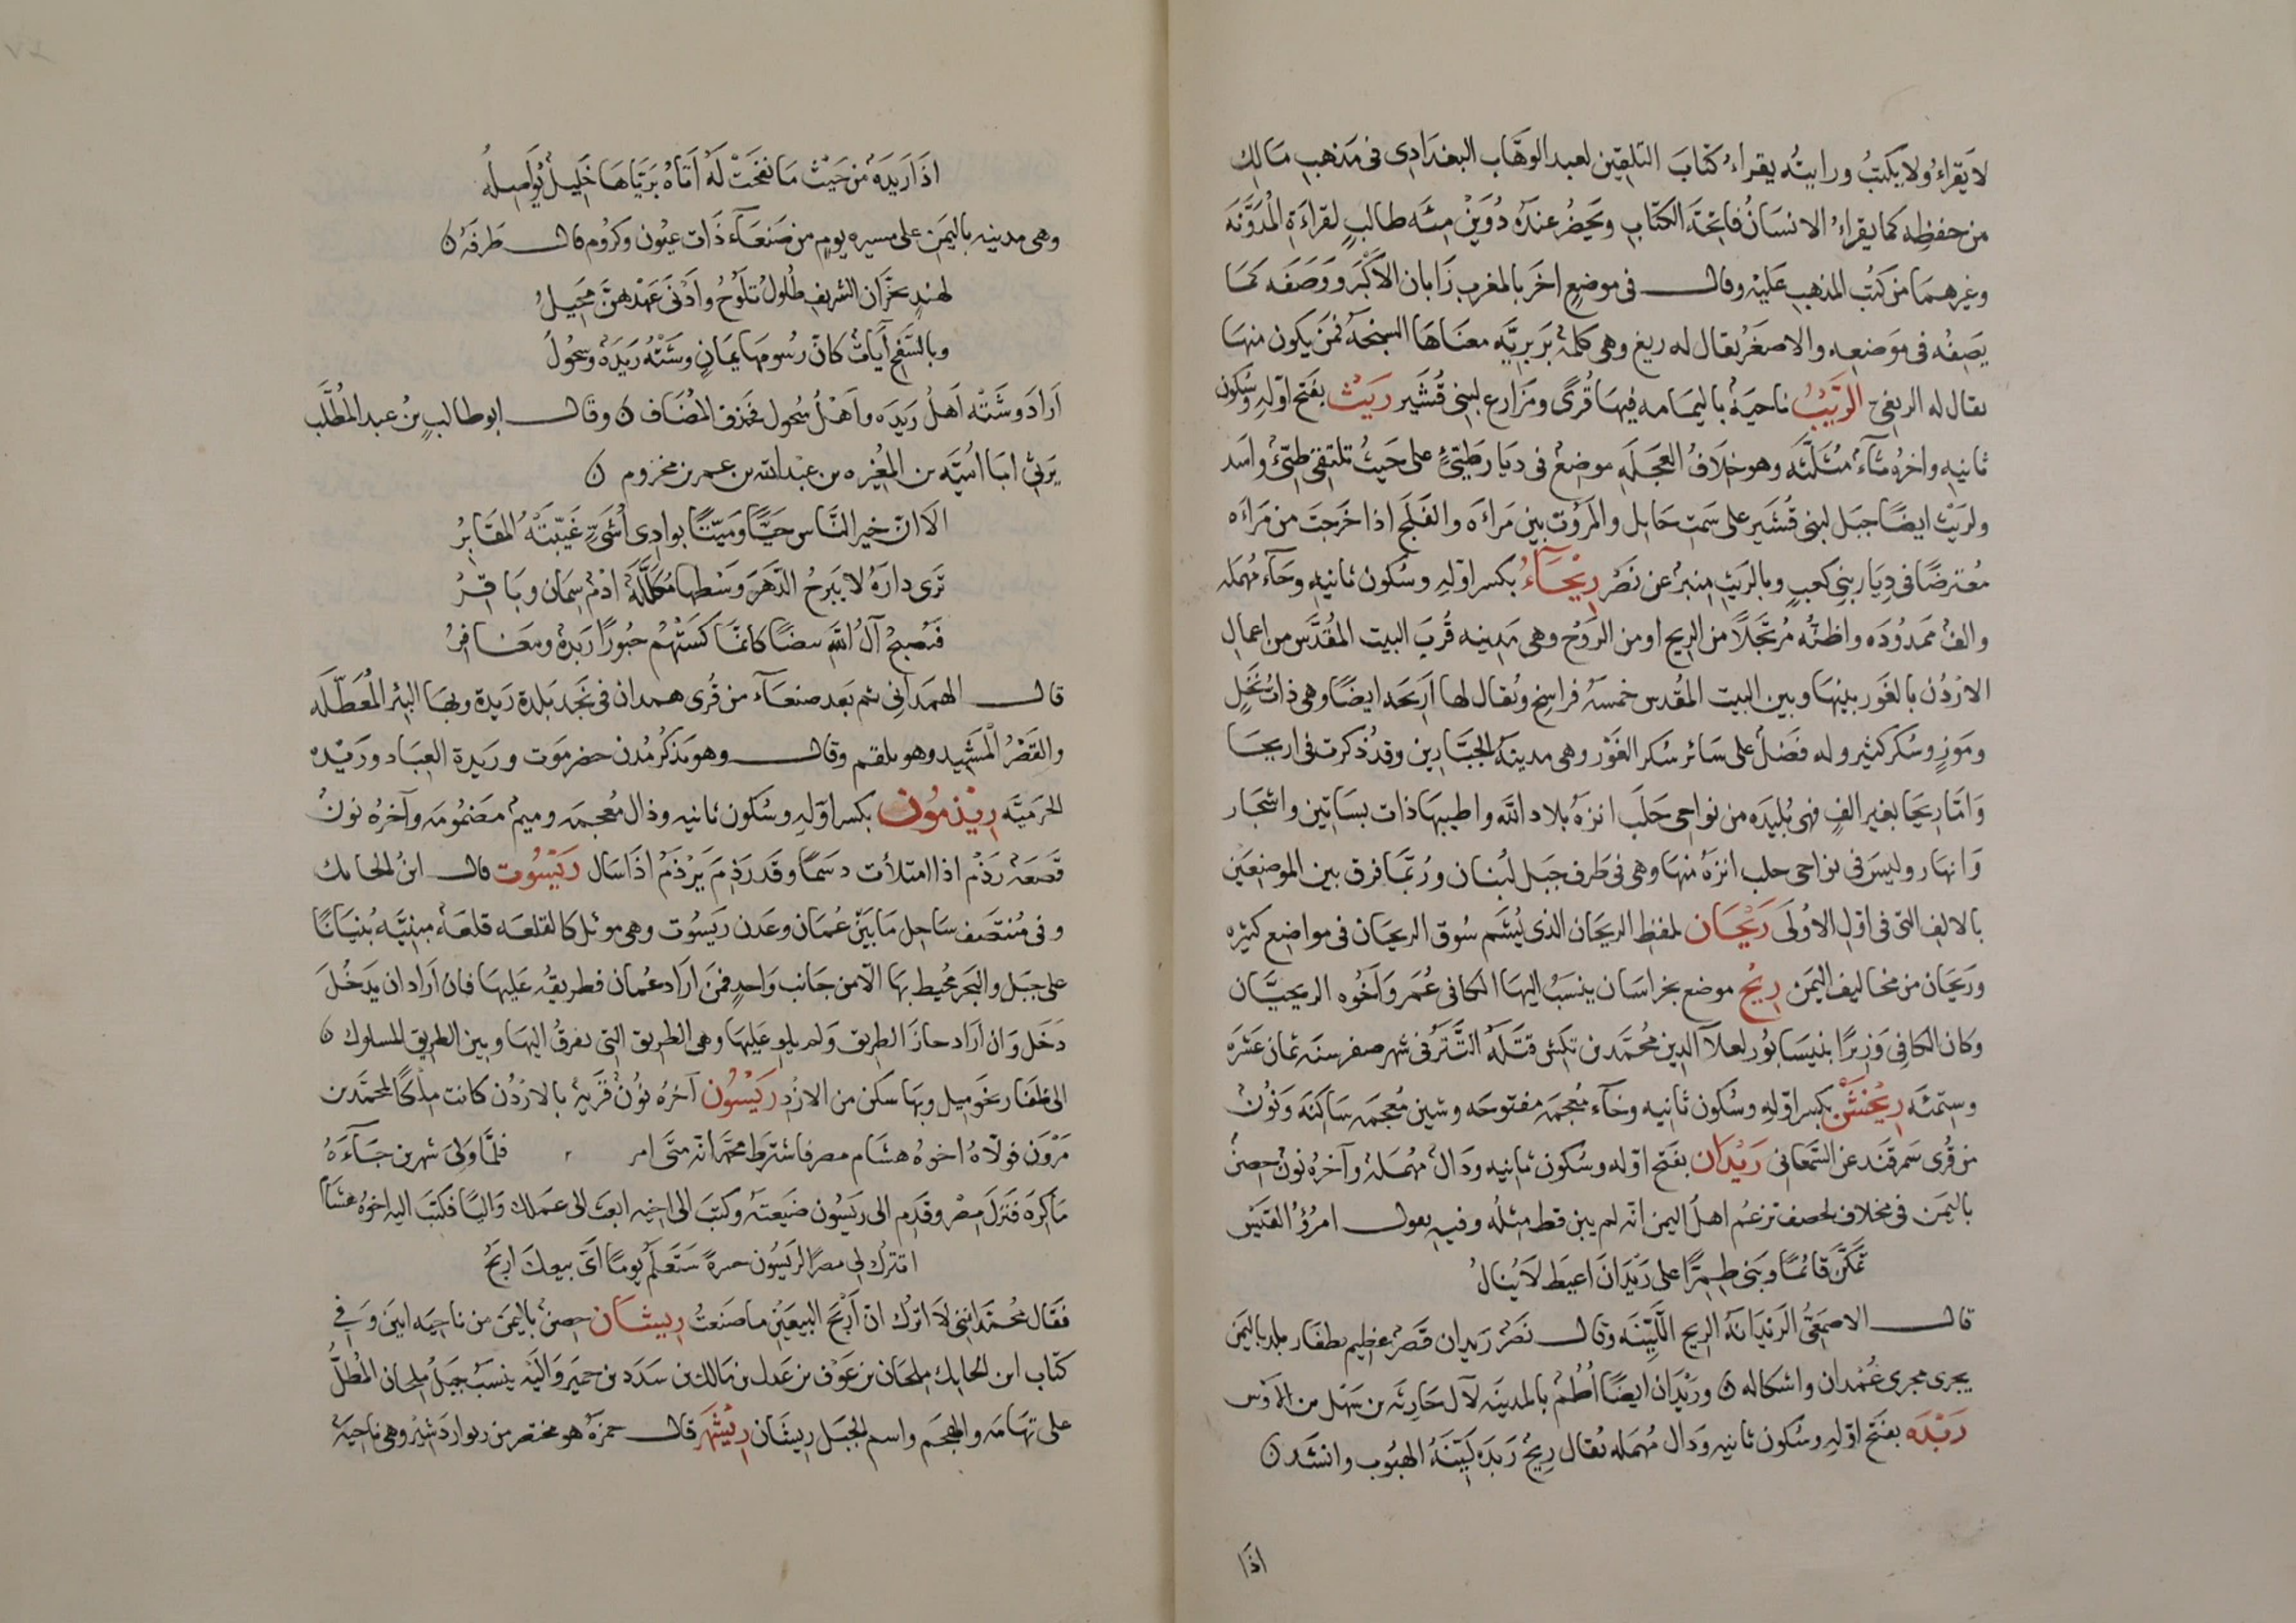 لا يقراءُ ولا يكتبُ ورايته يقراءُ كتابَ التلقين لعبد الوهَّاب البغدادى فى مذهبِ مَالِك
من حفظِه كما يقراءُ الانسَانُ فاتحةَ الكتابِ ويحضرُ عندَهُ دُوَيْن مِئَه طالبٍ لقراءَةِ المُدَوَّنَه
وغيرهمَا من كتُب المذهبِ عَليْه وقال فى موضعٍ اخَر بالمغرب زَابان الاكْبَر ووَصَفَه كمَا
يصِفُه فى موَضعِه والاصغَرُ يقال له ريغ وهى كلمةٌ بَربريَّه معنَاهَا السبخهُ فمَن يكون منهَا
يقال له الريغى الرَّيْبُ ناحيَةٌ باليمَامه فيهَا قُرًى ومَزارع لبنى قُشَير رَيْث بفتح اوّلهِ وسُكون
ثانيه واخرُهُ ثآءٌ مُثلّثَه وهو خلَافُ العَجَلَهِ موضعٌ فى ديَار طَيّئٍ على حَيثُ تلتقى طيّئ واسَد
ولرَيْث ايضًا جبَل لبنى قُشَير على سَمت حَايل والمَرُوت بين مَراءَه والفَلَج اذا خرَجتَ من مَراءَه
مُعترضًا فى دِيَار بنى كعبٍ وبالرَيث منبرٌ عن نَصر رِيْحَآءُ بكسر اوّلهِ وسُكون ثانيهِ وحآءٍ مُهمَله
والفٌ ممدُودَه واظنُّه مُرتجَلًا من الريح اومن الرَوْح وهى مَدينه قُربَ البيت المُقدَّس من اعمالِ
الاردُن بالغَور بينهَا وبين البيت المُقدس خمسَهُ فراسِخ ويُقال لها اَرِيحَه ايضًا وهى ذاتُ نَخْلٍ
ومَوزٍ وسُكر كثير وله فَضلٌ على سَائر سُكر الغَوْر وهى مدينَهُ الجبَّارين وقد ذكرت فى اريحَا
وَامَّا رِيحَا بغير الفٍ فهى بُليدَه من نواحى حَلَب انزهُ بلاد الله واطيبهَا ذات بسَاتين واشجَار
وَانهَار وليسَ فى نواحى حلب انزهُ منهَا وهى فى طرف جَبَل لُبنان ورُبّمَا فرق بين الموضعَيْن
بالالفِ التى فى اوّل الاولى رَيْحَان لمفظِ الريحَان الذى يُشَم سُوق الريحَان فى مواضع كثيره
ورَيحَان من مخاليف اليمَن رِيْخُ موضع بخراسَان ينسَبُ اليهَا الكافى عُمَر وَاخُوه الريخيَّان
وكان الكافى وَزيرًا بنيسَابُور لعلآ الدين محُمَّد بن تكش قتَلَهُ التَتَر فى شهر صفر سنَه ثمان عَشَرَه
وستمئَه رِيْخَشْن بكسر اوّلهِ وسُكون ثانيه وخآء مُعجمَه مفتوحَه وشين مُعجمَه سَاكنَه وَنُونٌ
من قُرى سَمرقَند عن السَّمعَانى رَيْدَان بفَتح اوّله وسُكون ثانيه ودَالٌ مُهمَلهٌ وآخرُهُ نونٌ حصنٌ
باليَمن فى مخلاف لحصف تزعُم اهلُ اليَمن انّه لم يبن قط مِثلُه وفيهِ يقول امرُؤُ القَيْسِ
تمَكَّنَ قائمًا وبَنى طِمِرًّا على رَيْدَانَ اعيَطَ لَا يُنالُ
قال الاصمَعىُّ الرَيْدَانَهُ الريحِ اللَّيّنَه وقال نَصر رَيدان قَصرٌ عظيم بظفَار بلد باليَمن
يجرى مجرى غُمدان واشكاله ۞ ورَيْدَان ايضًا اُطُمٌ بالمدينَه لآل حَارِثَه بن سَهل من الاوْس
رَيْدَه بفَتح اوّلهِ وسُكون ثانيهِ وَدَال مُهمَله يُقال رِيحٌ رَيدَه لَيّنَةُ الهبُوبِ وانشَد ۞
اذَا
اذَا رَيدَةٌ من حَيْث مَا نفَحَتْ لَهُ اَتَاهُ بَرَيّاهَا خَلِيلٌ يُوَاصِلُه
وهى مدينه باليَمن على مسيره يومٍ من صَنعَآء ذات عيُون وكرُوم قال طَرفَه ۞
لهندٍ بحزَّان الشريفِ طُلولُ تلوْحُ وادْنَى عَهْدهنَّ مُحِيلُ
وبالسَّفحِ آيَاتٌ كانّ رُسومهَا يمَانٍ وشَتْهُ رَيدَةُ وسُحُولُ
اَرَادَ وشَتْه اَهلُ رَيدَه واَهْلُ سُحول فحَذف المُضَاف ۞ وقال ابوطالبِ بنُ عبد المُطَّلَب
يَرثى ابَا اُمَيَّه بن المُغيْره بن عبْد الله بن عمر بن مخزوم ۞
الَا انّ خيرَ النَّاس حَيًّا وميّتًا بوادِى اُشَىٍّ غَيّبَتْهُ المقَابِرُ
تَرى دارَهُ لا يَبرحُ الدَّهرَ وَسْطها مُكلَّلَةٌ ادْمٌ سِمَان وبَاقِرُ
فيُصبحُ آلُ اللهِ بيضًا كانمَّا كسَتْهُم حبُورًا رَيدَةٌ ومعَافِرُ
قال الهمَدانى ثم بَعد صنعآء من قُرى همدان فى نَجَد بَلدة رَيدَة وبهَا البئر المُعَطّلَه
والقَصْرُ المَشِيد وهو تلقم وقال وهو يَذكرُ مُدن حضرموَت وريَدة العِبَاد ورَيْده
الحرمَيَّه رِيْذمُون بكسر اوّلهِ وسُكون ثانيه وذال مُعجمَه وميمٌ مضمُومَه وآخرُهُ نونٌ
قَصعَةٌ رَذْم اذا امتلأت دسَمًا وقَد رَذِمَ يَرْذَمُ اذَا سَال رَيْسُوت قال ابنُ الحَايك
وفى مُنتصَف سَاحِل مَا بَيْن عُمَان وعَدن رَيسُوت وهى مَوئل كالقلعَه قلعَةٌ مبنيَّه بُنيَانًا
على جَبَل والبَحر مُحيط بهَا الّا من جَانب وَاحدٍ فمَن ارَادَ عُمان فطريقُه عَليهَا فان اَرادان يَدخُلَ
دَخَل وَان اَراد حازَ الطريق ولم يلوِ عَليهَا وهى الطريق التى تفرقُ اليها وبين الطريق المسلوك ۞
الى ظفَار نحو ميل وبهَا سكن من الازد رَيْسُون آخرُهُ نُونٌ قَريةٌ بالاردُن كانت مِلكًا لمحمَّد بن
مَرْوَن فولّاهُ اخوهُ هشَام مصر فاشترَط محمَّد انّه متَى امر فلمَّا وَلِىَ شهرين جَآءَهُ
مَا كرهَ فتَركَ مصْر وقدِم الى ريسُون ضَيعتَه وكتبَ الى اخيه ابعَث الى عمَلك وَاليًا فكتَبَ اليهِ اخوهُ هشَام
اتترُك لى مصرًا لريسُون حسرةً ستَعْلَمُ يومًا اىَّ بيعكَ اربَحُ
فقال محُمَّد اننى لَا اشُكّ انّ اَربَح البيعَيْنِ ما صَنعتُ رِيشَان حصنٌ باليمَن من ناحيَه ابيَن وَفى
كتَاب ابن الحايك مِلحَان بن عَوْف بن عَدى بن مَالك بن سَدَد بن حميَر وَاليْه ينسَبُ جَبلُ مِلحان المُطلُّ
على تهَامَه والمَهجَم واسم الجبَل رِيشَان رِيْشَهر قال حمزَهُ هو مختصر من ريواردَشيْر وهى ناحيَةٌ